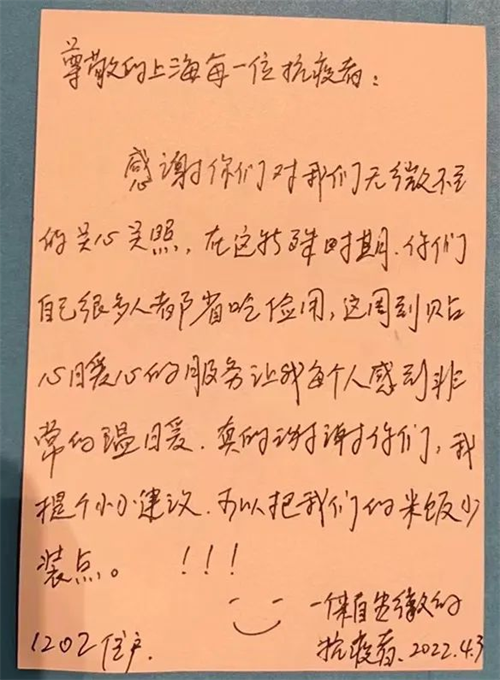 尊敬的上海每一位抗疫者：
感谢你们对我们无微不至
的关心关照，在这特殊时期.你们
自己很多人都节省吃俭用，这周到贴
心暖心的服务让我每个人感到非
常的温暖.真的谢谢你们，我
提个小小建议.可以把我们的米饭少
装点。 !!!
一个来自安徽的
1202住户. 抗疫者.2022.4.3